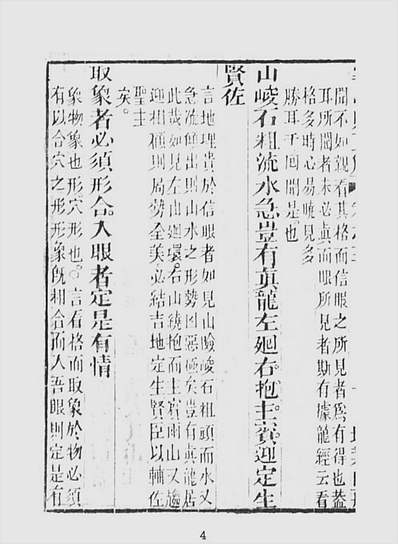 聞不如親看其格而信眼之所見者爲有得也蓋
耳所聞者未必眞而眼所見者斯有據龍經云看
格多時心易曉見多
勝耳千囘聞是也
山峻石粗流水急豈有眞龍左廻右抱主賓迎定生
賢佐
言地理貴於信眼者如見山險峻石粗頑而水又
急流傾出則山水之形勢凶惡極矣豈有眞龍居
此哉如見左山廻環右山繞抱而主賓兩山又趨
迎相極則局勢全美必結吉地定生賢臣以輔佐
聖主
矣
取象者必須形合入眼者定是有情
象物象也形穴形也言看格而取象於物必須
有以合穴之形形象旣相合而人吾眼則定是有
4